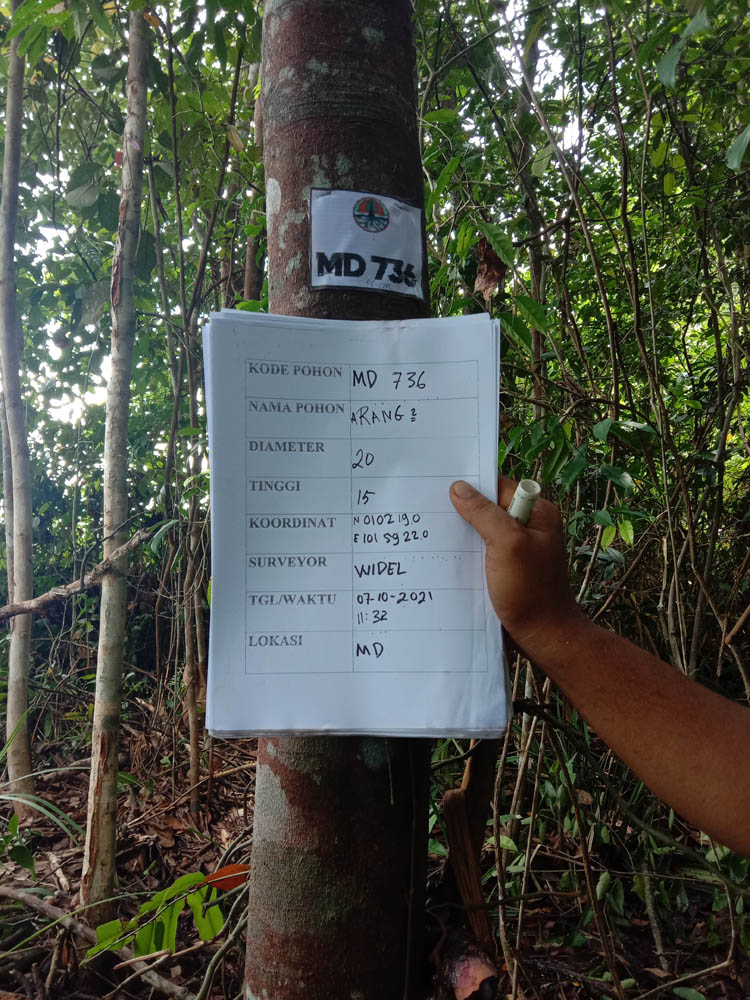 MD 736
KODE POHON MD 736
NAMA POHON ARANG 2
DIAMETER 20
TINGGI 15
KOORDINAT N 0102 19.0
E 101 59 22.0
SURVEYOR WIDEL
TGL/WAKTU 07-10-2021
11:32
LOKASI MD